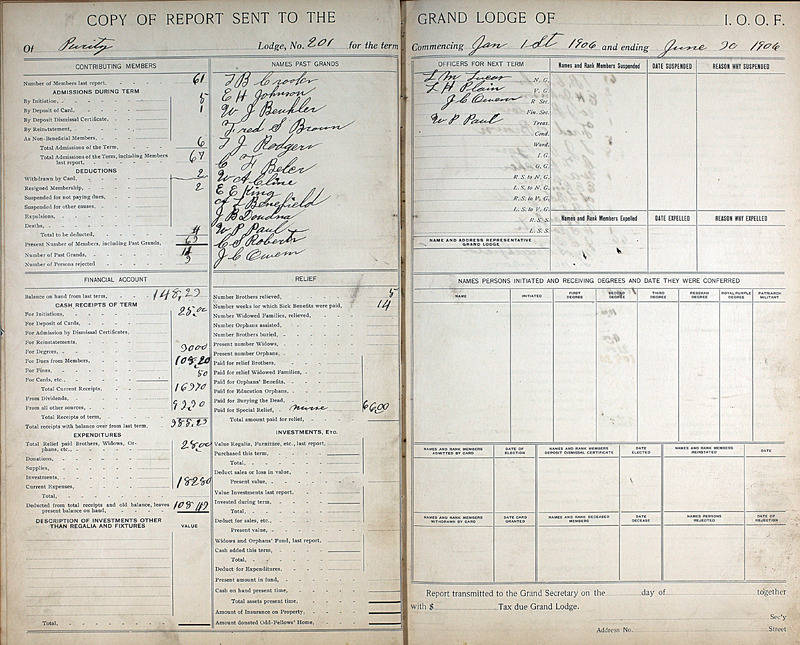 COPY OF REPORT SENT TO THE
Of Purity Lodge, No. 201 for the term
CONTRIBUTING MEMBERS
Number of Members last report, 61
ADMISSIONS DURING TERM
By Initiation, 5
By Deposit of Card, 1
By Deposit Dismissal Certificate,
By Reinstatement,
As Non-Beneficial Members,
Total Admissions of the Term, 6
Total Admissions of the Term, including Members last report, 67
DEDUCTIONS
Withdrawn by Card, 2
Resigned Membership, 2
Suspended for not paying dues,
Suspended for other causes,
Expulsions,
Deaths,
Total to be deducted, 4
Present Number of Members, including Past Grands, 63
Number of Past Grands,
Number of Persons rejected 3
NAMES PAST GRANDS
E H Johnson
W J Beukler
Fred S Brown
T J Rodgers
W A Cline
E E King
A L Benefield
J B Doudna
W P Paul
C S Roberts
J C Owem
FINANCIAL ACCOUNT
Balance on hand from last term, 148,23
CASH RECEIPTS OF TERM
For Initiations, 25.00
For Deposit of Cards,
For Admission by Dismissal Certificates,
For Reinstatements,
For Degrees, 3000
For Dues from Members, 108,20
For Fines, 50
For Cards, etc.,
Total Current Receipts, 16370
From Dividends,
From all other sources,
Total Receipts of term,
Total receipts with balance over from last term,
EXPENDITURES
Total Relief paid Brothers, Widows, Orphans, etc., 28,00
Donations,
Supplies,
Investments,
Current Expenses, 18280
Total,
Deducted from total receipts and old balance, leaves present balance on hand,
DESCRIPTION OF INVESTMENTS OTHER THAN REGALIA AND FIXTURES VALUE
Total,
RELIEF
Number Brothers relieved, 5
Number weeks for which Sick Benefits were paid, 14
Number Widowed Families, relieved,
Number Orphans assisted,
Number Brothers buried,
Present number Widows,
Present number Orphans,
Paid for relief Brothers,
Paid for relief Widowed Families,
Paid for Orphans' Benefits,
Paid for Education Orphans,
Paid for Burying the Dead,
Paid for Special Relief, nurse 6600
Total amount paid for relief,
INVESTMENTS, Etc.
Value Regalia, Furniture, etc., last report,
Purchased this term,
Total,
Deduct sales or loss in value,
Present value,
Value Investments last report,
Invested during term,
Total,
Deduct for sales, etc.,
Present value,
Widows and Orphans' Fund, last report,
Cash added this term,
Total,
Deduct for Expenditures,
Present amount in fund,
Cash on hand present time,
Total assets present time,
Amount of Insurance on Property,
Amount donated Odd-Fellows' Home,
GRAND LODGE OF I. O. O. F.
Commencing Jan 1st 1906 and ending June 30 1906
OFFICERS FOR NEXT TERM
N. G.
L H Plain V. G.
J C Owem R. Sec.
Fin. Sec.
W P Paul Treas.
Cond.
Ward.
I. G.
O. G.
R. S. to N. G.
L. S. to N. G.
R. S. to V. G.
L. S. to V. G.
R. S. S.
L. S. S.
NAME AND ADDRESS REPRESENTATIVE GRAND LODGE
Names and Rank Members Suspended DATE SUSPENDED REASON WHY SUSPENDED
Names and Rank Members Expelled DATE EXPELLED REASON WHY EXPELLED
NAMES PERSONS INITIATED AND RECEIVING DEGREES AND DATE THEY WERE CONFERRED
NAME INITIATED FIRST DEGREE SECOND DEGREE THIRD DEGREE REBEKAH DEGREE ROYAL PURPLE DEGREE PATRIARCH MILITANT
NAMES AND RANK MEMBERS ADMITTED BY CARD DATE OF ELECTION NAMES AND RANK MEMBERS DEPOSIT DISMISSAL CERTIFICATE DATE ELECTED NAMES AND RANK MEMBERS REINSTATED DATE
NAMES AND RANK MEMBERS WITHDRAWN BY CARD DATE CARD GRANTED NAMES AND RANK DECEASED MEMBERS DATE DECEASE NAMES PERSONS REJECTED DATE OF REJECTION
Report transmitted to the Grand Secretary on the day of together
with $ Tax due Grand Lodge.
Sec'y
Address No. Street